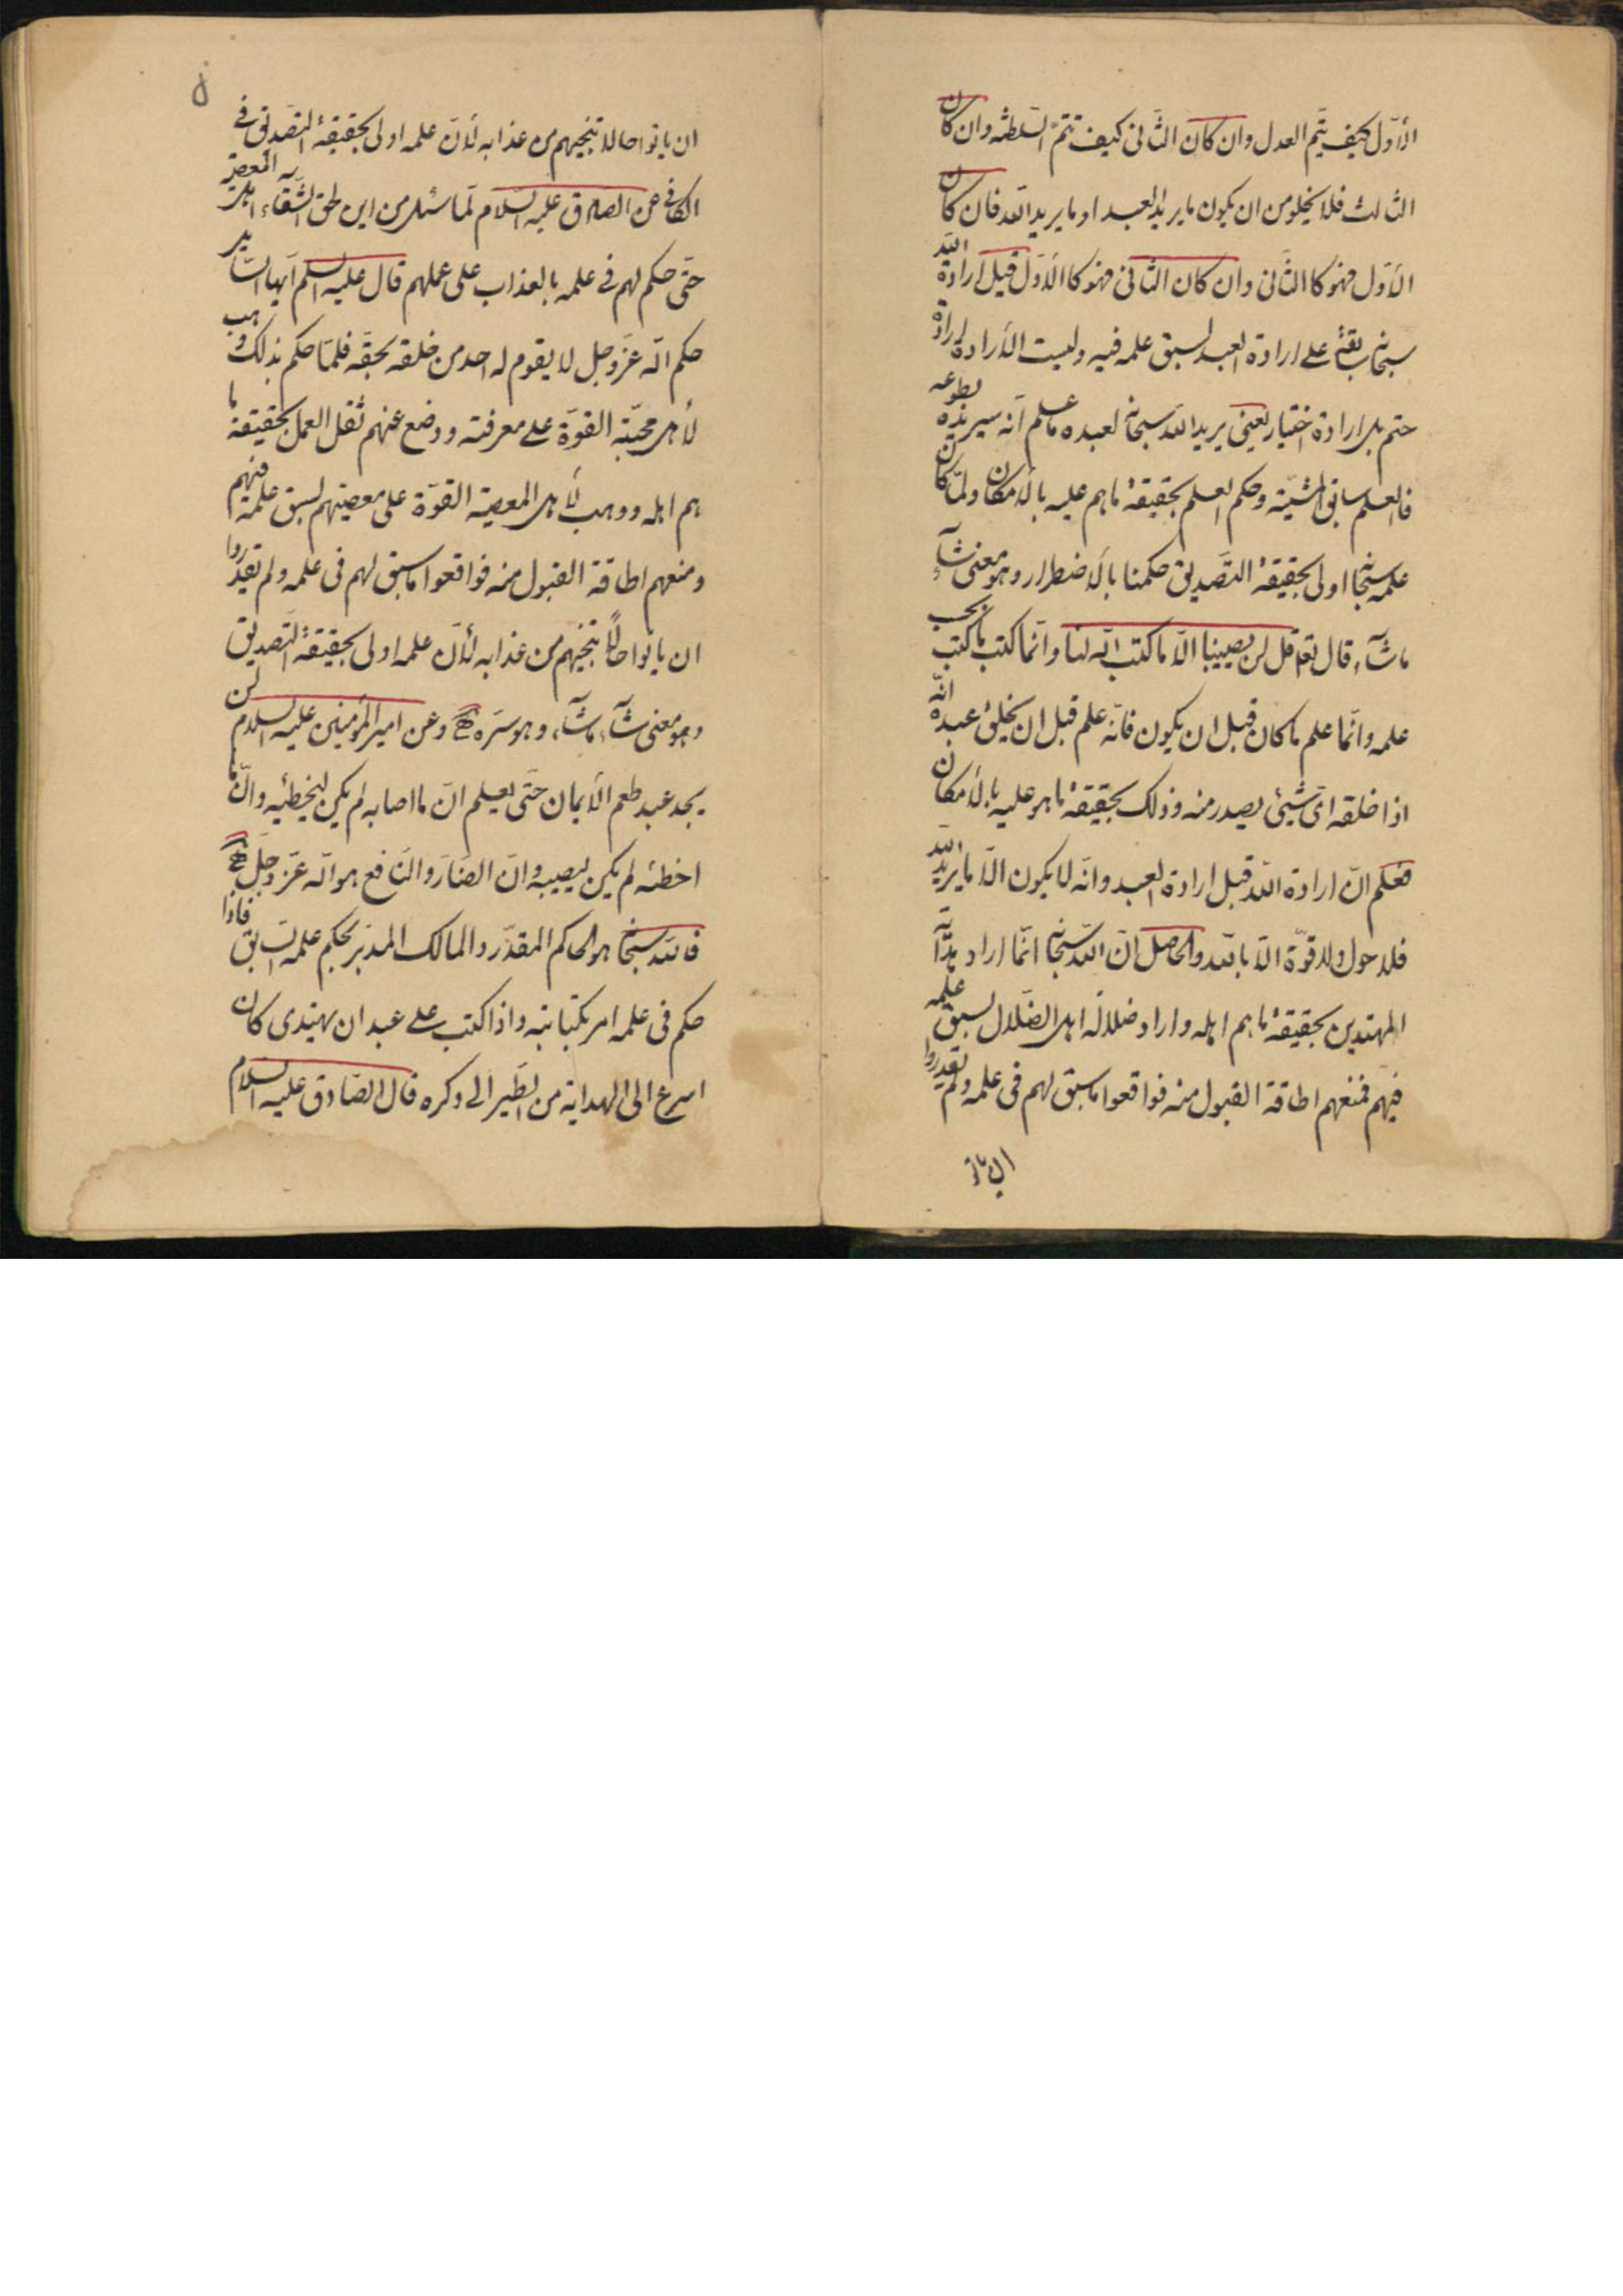 الأوّل كيف يتم العدل وان كان الثانى كيف تتمّ السّلطنه وان كان
الثالث فلا يخلو من ان يكون ما يريد العبد او ما يريد الله فان كان
الأوّل فهو كا الثانى وان كان الثانى فهو كا الأوّل قيل ارادة الله
سبحانه على ارادة العبد لسبق علمه فيه وليست الأرادة ارادة
حتم بل ارادة اختيار يعنى يريد الله سبحانه لعبده ما علم انّه سيريده بطوعه
فالعلم سابق المشيّة وحكم العلم بحقيقة ما هم عليه بالأمكان ولمّا كان
علمه سبحانه اولى بحقيقة التّصديق حكمنا بالاضطرار وهو معنى شآء
ما شآء قال تعا قل لن يصيبنا الّا ما كتب الله لنا وانّما كتب ما كتب بحسب
علمه وانّما علم ما كان قبل ان يكون فانّه علم قبل ان يخلق عبده انّه
اذا خلقه اىّ شيئى يصدر منه وذلك بحقيقة ما هو عليه بالأمكان
فعلم انّ ارادة الله قبل ارادة العبد وانّه لا يكون الّا ما يريد الله
فلا حول ولا قوّة الّا بالله والحاصل انّ الله سبحانه انّما اراد هداية
المهتدين بحقيقة ما هم اهله واراد ضلالة اهل الضّلال لسبق علمه
فيهم فمنعهم اطاقة القبول منه فواقعوا ما سبق لهم فى علمه ولم يقدروا
ان ياتوا
ان ياتوا حالا تنجيهم من عذابه لأنّ علمه اولى بحقيقة التّصديق فى
الكافى عن الصادق عليه السّلام لمّا سئل من اين لحق الشّقاء اهل المعصية
حتّى حكم لهم فى علمه بالعذاب على عملهم قال عليه السلم ايّها السّائل
حكم الله عزّ وجل لا يقوم له احد من خلقه بحقّه فلمّا حكم بذلك وهب
لأهل محبّته القوّة على معرفته ووضع عنهم ثقل العمل بحقيقة ما
هم اهله ووهب لأهل المعصية القوّة على معصيتهم لسبق علمه فيهم
ومنعهم اطاقة القبول منه فواقعوا ما سبق لهم فى علمه ولم يقدروا
ان ياتوا حالًا تنجيهم من عذابه لأنّ علمه اولى بحقيقة التّصديق
وهو معنى شآء ما شآء وهو سرّه وعن امير المؤمنين عليه السلام لن
يجد عبد طعم الأيمان حتّى يعلم انّ ما اصابه لم يكن ليخطئه وانّ ما
اخطئه لم يكن ليصيبه وانّ الضّارّ والنّافع هو الله عزّ وجلّ
فالله سبحانه هو الحاكم المقدّر والمالك المدبّر بحكم علمه السّابق فاذا
حكم فى علمه امر بكتابته واذا كتب على عبد ان يهتدى كان
اسرع الى الهداية من الطّير الى وكره قال الصّادق عليه السلام